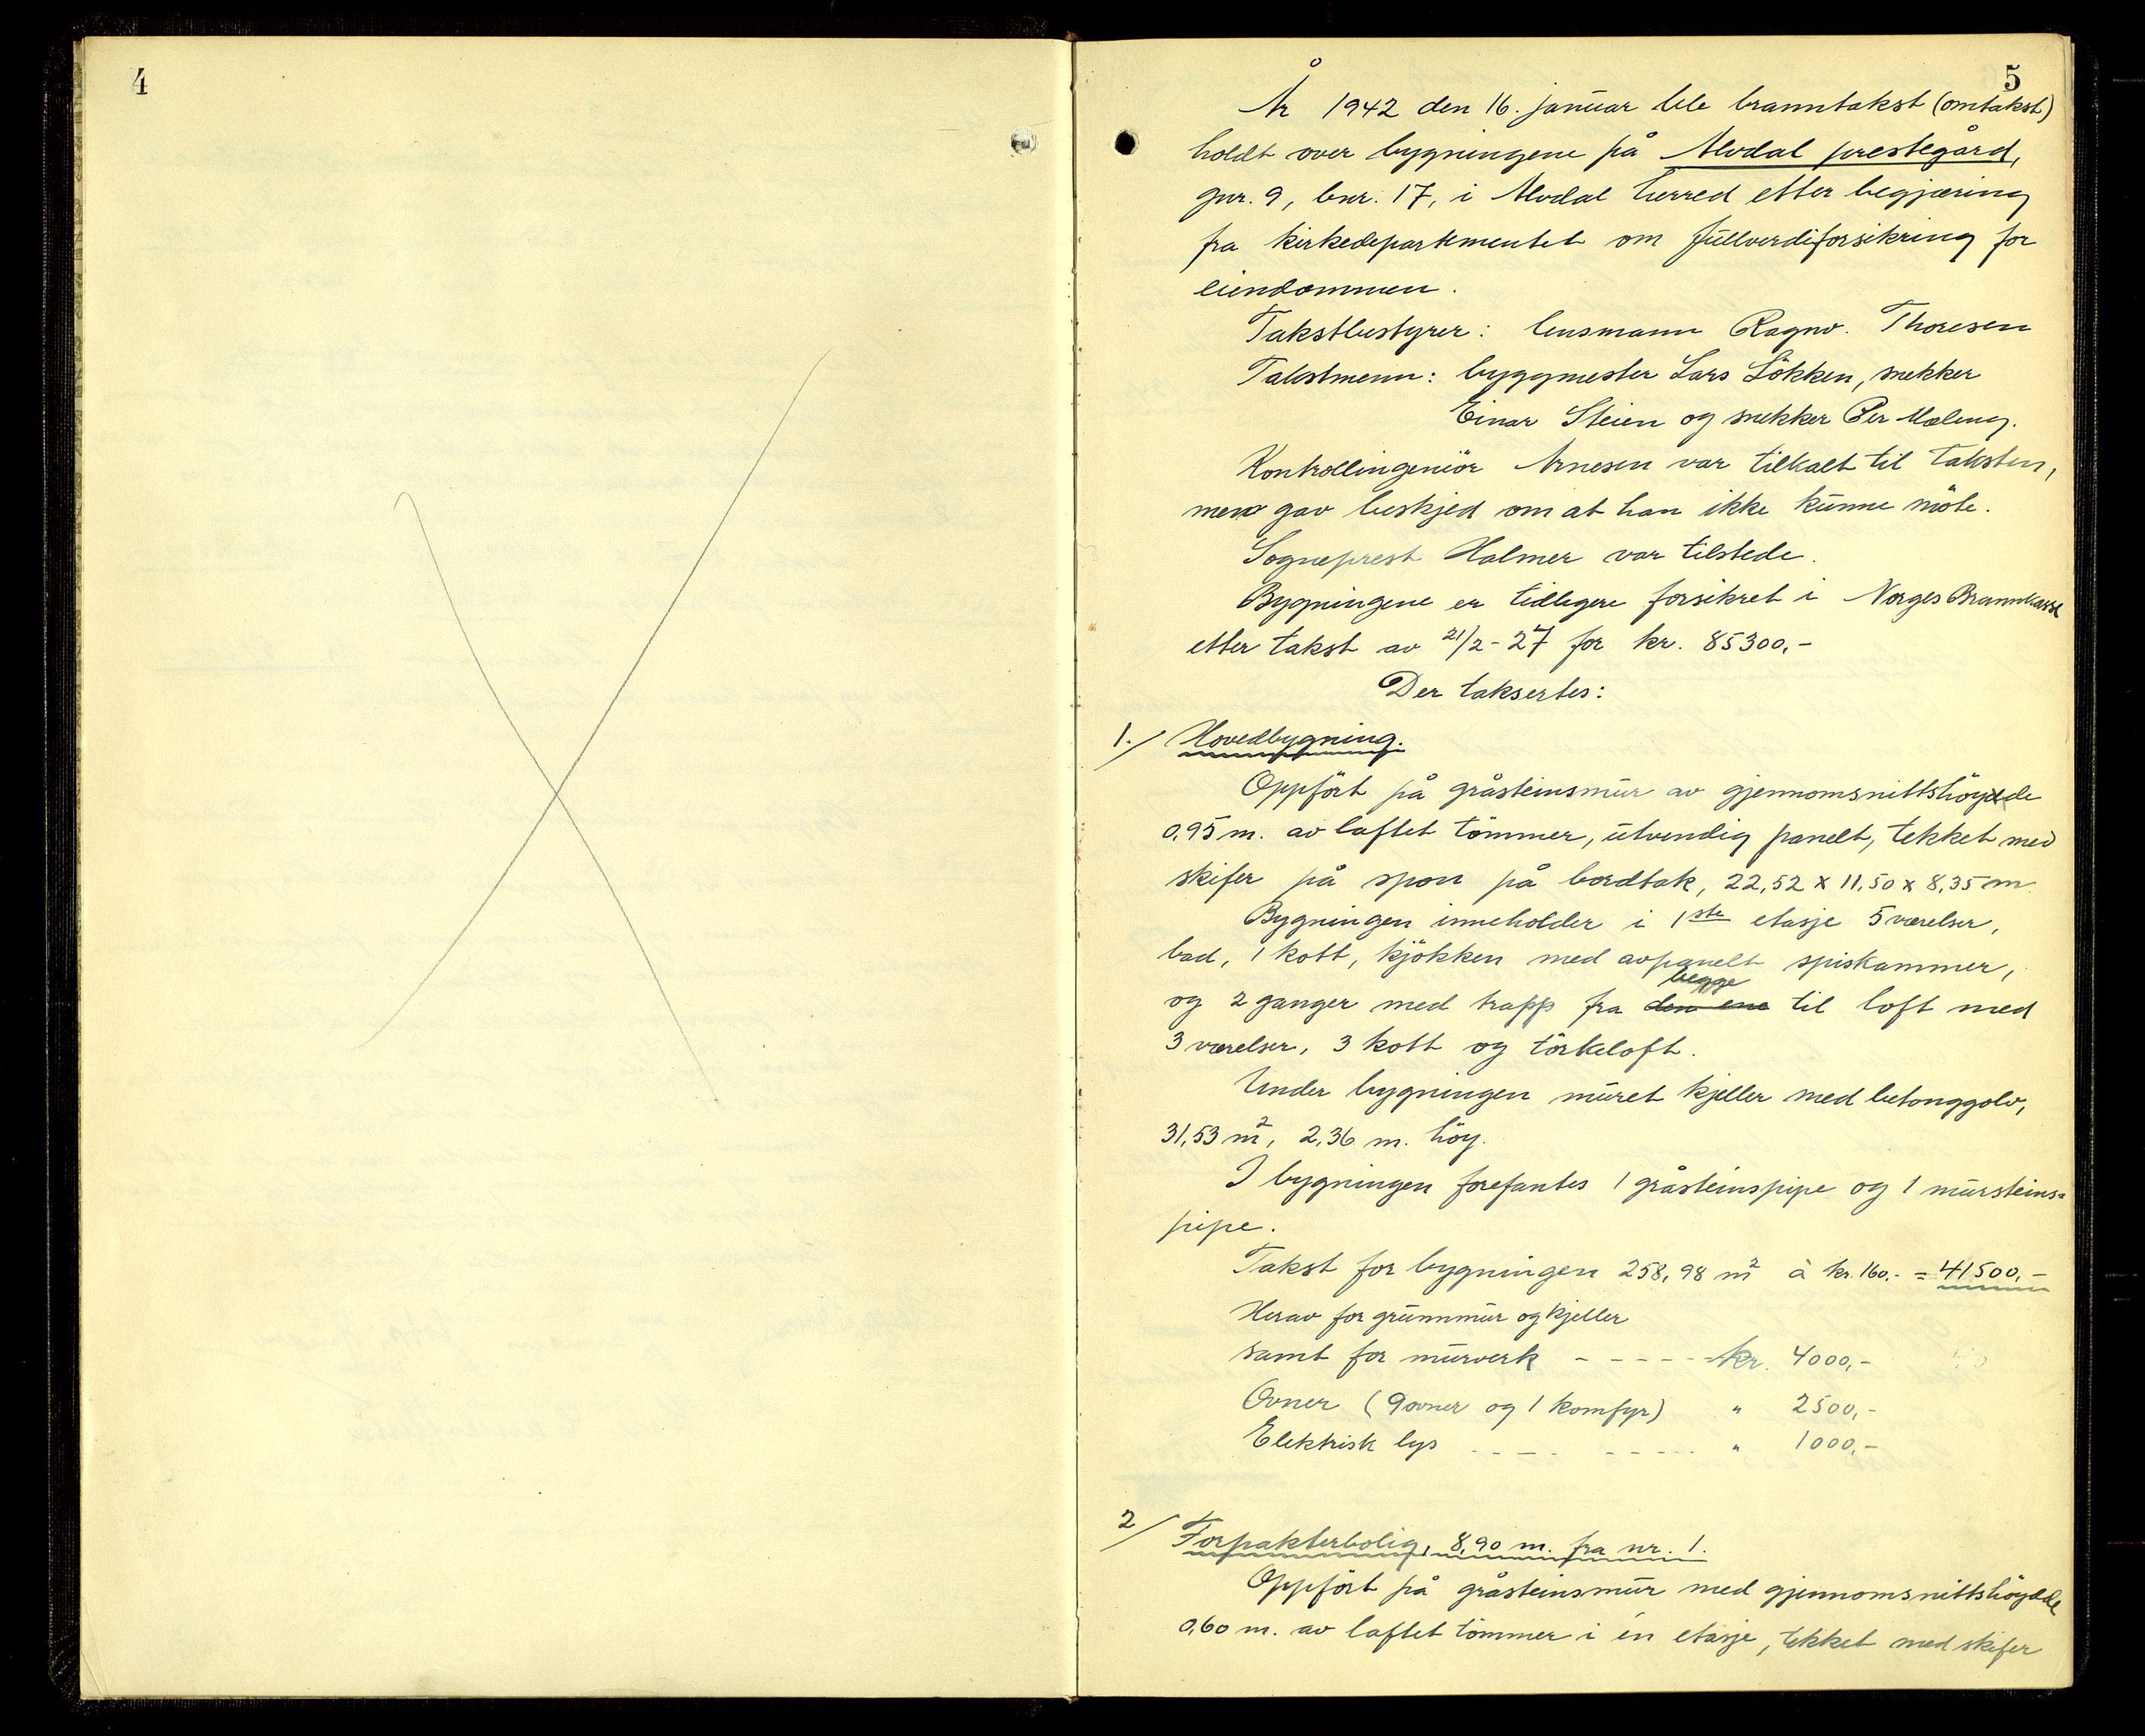 4
5
År 1942 den 16. januar ble branntakst (omtakst)
holdt over bygningene på Alvdal prestegård,
gnr. 9, bnr. 17, i Alvdal herred etter begjæring
fra kirkedepartementet om fullverdiforsikring for
eiendommen.
Takstbestyrer: lensmann Ragnv. Thoresen
Takstmenn: byggmester Lars Lökken, snekker
Einar Steien og snekker Per Mæleng.
Kontrollingeniör Arnesen var tilkalt til taksten,
men gav beskjed om at han ikke kunne möte.
Sogneprest Halmer var tilstede.
Bygningene er tidligere forsikret i Norges Brannkasse
etter takst av 21/2-27 for kr. 85300,-
Der taksertes:
1./ Hovedbygning.
Oppfört på gråsteinsmur av gjennomsnittshöyde
0,95 m. av laftet tömmer, utvendig panelt, tekket med
skifer på spon på bordtak, 22,52 x 11,50 x 8,35 m.
Bygningen inneholder i 1ste etasje 5 værelser,
bad, 1 kott, kjökken med avpanelt spiskammer,
begge
og 2 ganger med trapp fra den ene til loft med
3 værelser, 3 kott og törkeloft.
Under bygningen muret kjeller med betonggolv,
31,53 m², 2,36 m. höy.
I bygningen forefantes 1 gråsteinspipe og 1 mursteins=
pipe.
Takst for bygningen 258,98 m² à kr. 160.- = 41500,-
Herav for grunnmur og kjeller
samt for murverk - - - - - kr. 4000,-
Ovner (9 ovner og 1 komfyr) " 2500,-
Elektrisk lys - - - - - - - - - " 1000,-
2/ Forpakterbolig, 8,90 m. fra nr. 1.
Oppfört på gråsteinsmur med gjennomsnittshöyde
0,60 m. av laftet tömmer i én etasje, tekket med skifer